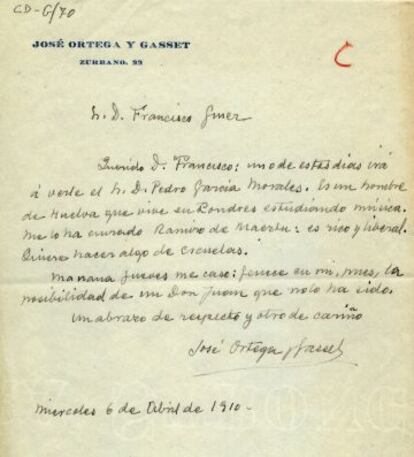 CD-G/70
JOSÉ ORTEGA Y GASSET
ZURBANO, 22
C
Sr. D. Francisco Giner
Querido D. Francisco: uno de estos dias irá
á verle el Sr. D. Pedro García Morales. Es un hombre
de Huelva que vive en Londres estudiando música.
Me lo ha enviado Ramiro de Maeztu: es rico y liberal.
Quiere hacer algo de escuelas.
Mañana jueves me caso: fenece en mi, pues, la
posibilidad de un Don Juan que no lo ha sido.
Un abrazo de respeto y otro de cariño
José Ortega y Gasset
Miercoles 6 de Abril de 1910-